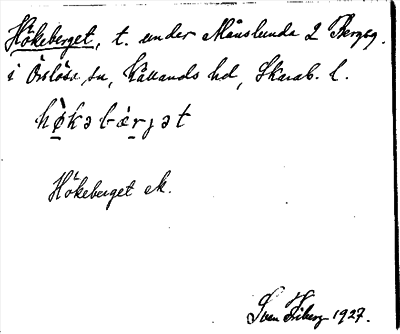 Hökeberget, t. under Månslunda 2 Bergsg.
i Örslösa sn, Kållands hd, Skarab. l.
hø̀kəbær̀jət
Hökeberget ek.
Sven Friberg 1927.